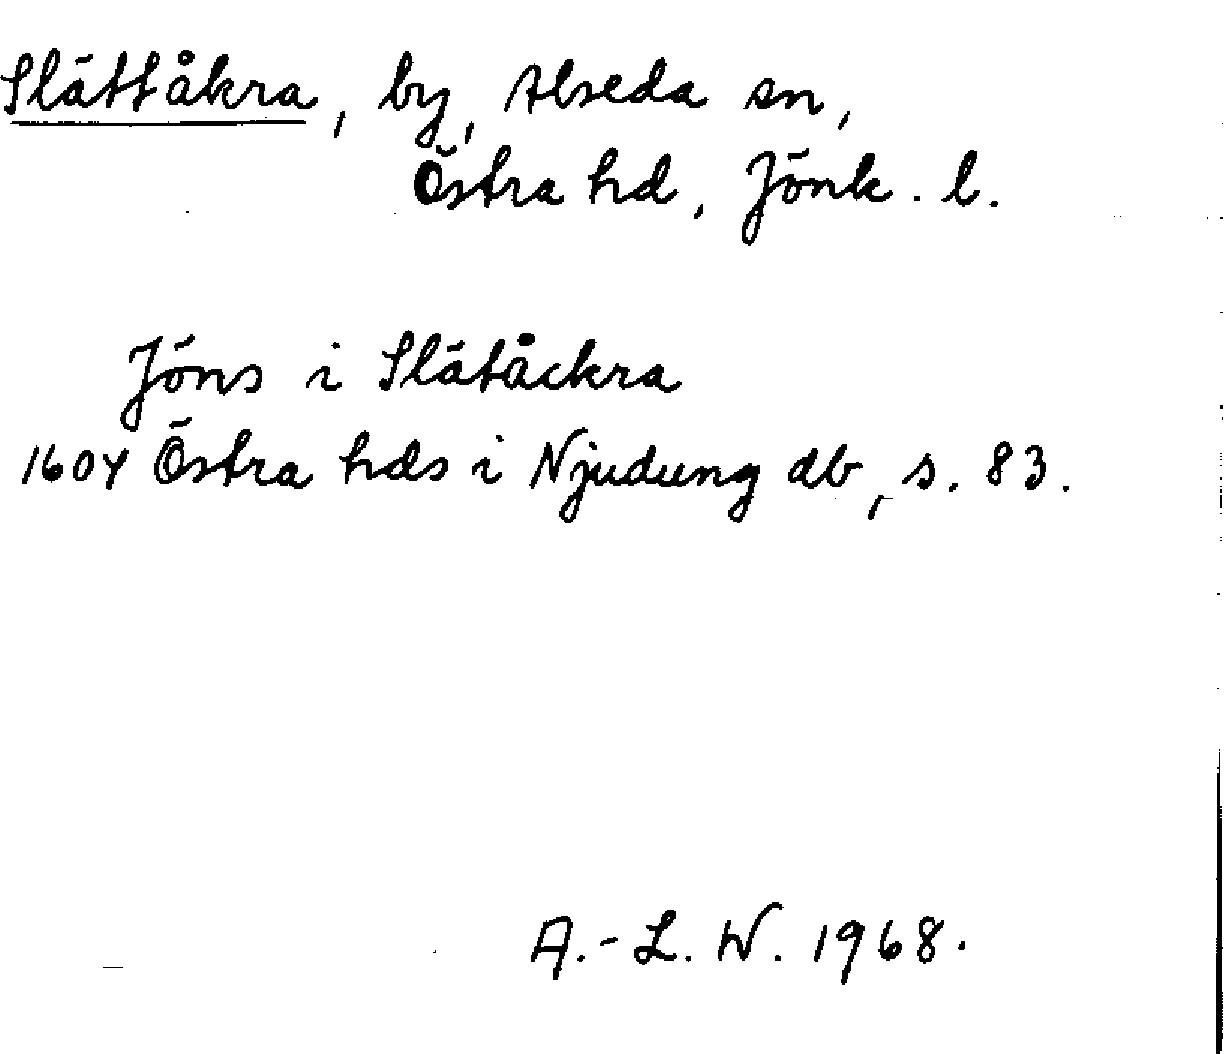 Slättåkra, by, Alseda sn,
Östra hd, Jönk. l.
Jöns i Slätåckra
1604 Östra hds i Njudung db, s. 83.
A.-L. W. 1968.